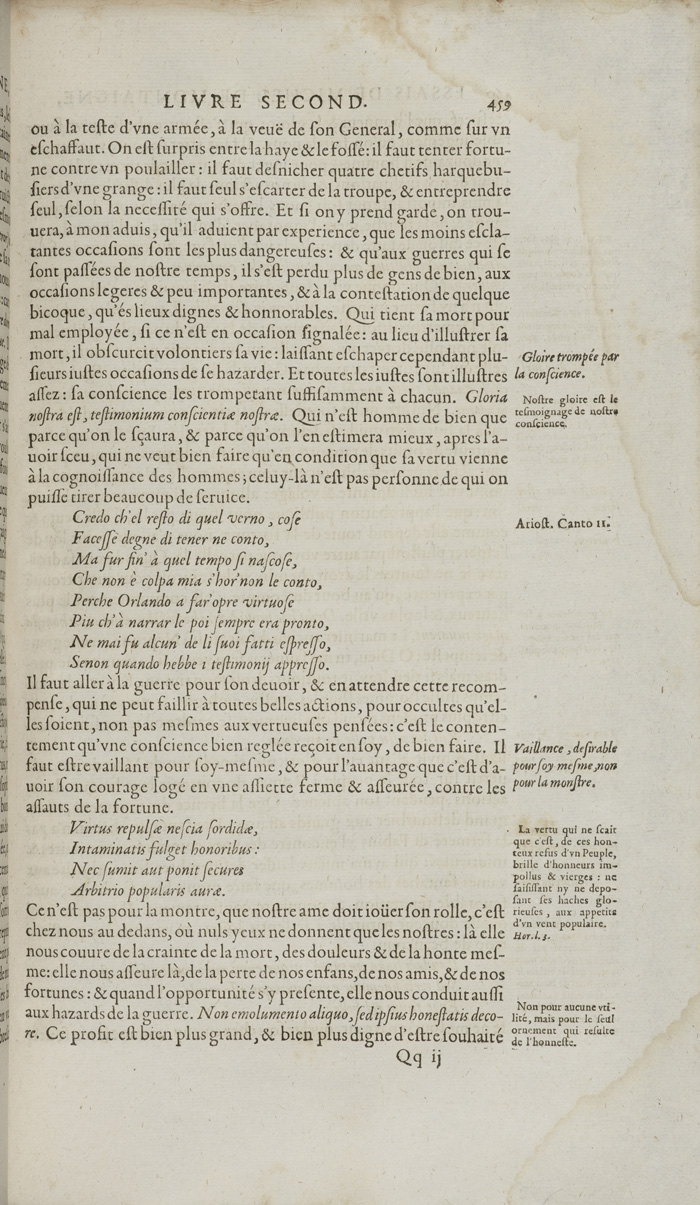 LIVRE SECOND. 459
ou à la teſte d'vne armée, à la veuë de ſon General, comme ſur vn
eſchaffaut. On eſt ſurpris entre la haye & le foſſé: il faut tenter fortu-
ne contre vn poulailler: il faut deſnicher quatre chetifs harquebu-
ſiers d'vne grange: il faut ſeul s'eſcarter de la troupe, & entreprendre
ſeul, ſelon la neceſſité qui s'offre. Et ſi on y prend garde, on trou-
uera, à mon aduis, qu'il aduient par experience, que les moins eſcla-
tantes occaſions ſont les plus dangereuſes: & qu'aux guerres qui ſe
ſont paſſées de noſtre temps, il s'eſt perdu plus de gens de bien, aux
occaſions legeres & peu importantes, & à la conteſtation de quelque
bicoque, qu'és lieux dignes & honnorables. Qui tient ſa mort pour
mal employée, ſi ce n'eſt en occaſion ſignalée: au lieu d'illuſtrer ſa
mort, il obſcurcit volontiers ſa vie: laiſſant eſchaper cependant plu-
ſieurs iuſtes occaſions de ſe hazarder. Et toutes les iuſtes ſont illuſtres
aſſez: ſa conſcience les trompetant ſuffiſamment à chacun. Gloria
noſtra eſt, teſtimonium conſcientiæ noſtræ. Qui n'eſt homme de bien que
parce qu'on le ſçaura, & parce qu'on l'en eſtimera mieux, apres l'a-
uoir ſceu, qui ne veut bien faire qu'en condition que ſa vertu vienne
à la cognoiſſance des hommes; celuy-là n'eſt pas perſonne de qui on
puiſſe tirer beaucoup de ſeruice.
Gloire trompée par
la conſcience.
Noſtre gloire eſt le
teſmoignage de noſtre
conſcience.
Credo ch'el reſto di quel verno, coſe
Faceſſe degne di tener ne conto,
Ma fur fin' à quel tempo ſi naſcoſe,
Che non è colpa mia s'hor'non le conto,
Perche Orlando a far'opre virtuoſe
Piu ch'à narrar le poi ſempre era pronto,
Ne mai fu alcun' de li ſuoi fatti eſpreſſo,
Senon quando hebbe i teſtimonij appreſſo.
Arioſt. Canto 11.
Il faut aller à la guerre pour ſon deuoir, & en attendre cette recom-
penſe, qui ne peut faillir à toutes belles actions, pour occultes qu'el-
les ſoient, non pas meſmes aux vertueuſes penſées: c'eſt le conten-
tement qu'vne conſcience bien reglée reçoit en ſoy, de bien faire. Il
faut eſtre vaillant pour ſoy-meſme, & pour l'auantage que c'eſt d'a-
uoir ſon courage logé en vne aſſiette ferme & aſſeurée, contre les
aſſauts de la fortune.
Vaillance, deſirable
pour ſoy meſme, non
pour la monſtre.
Virtus repulſæ neſcia ſordidæ,
Intaminatis fulget honoribus:
Nec ſumit aut ponit ſecures
Arbitrio popularis auræ.
La vertu qui ne ſcait
que c'eſt, de ces hon-
teux refus d'vn Peuple,
brille d'honneurs im-
pollus & vierges: ne
ſaiſiſſant ny ne depo-
ſant ſes haches glo-
rieuſes, aux appetits
d'vn vent populaire.
Hor. l. 3.
Ce n'eſt pas pour la montre, que noſtre ame doit ioüer ſon rolle, c'eſt
chez nous au dedans, où nuls yeux ne donnent que les noſtres: là elle
nous couure de la crainte de la mort, des douleurs & de la honte meſ-
me: elle nous aſſeure là, de la perte de nos enfans, de nos amis, & de nos
fortunes: & quand l'opportunité s'y preſente, elle nous conduit auſſi
aux hazards de la guerre. Non emolumento aliquo, ſed ipſius honeſtatis deco-
re. Ce profit eſt bien plus grand, & bien plus digne d'eſtre ſouhaité
Non pour aucune vti-
lité, mais pour le ſeul
ornement qui reſulte
de l'honneſte.
Qq ij